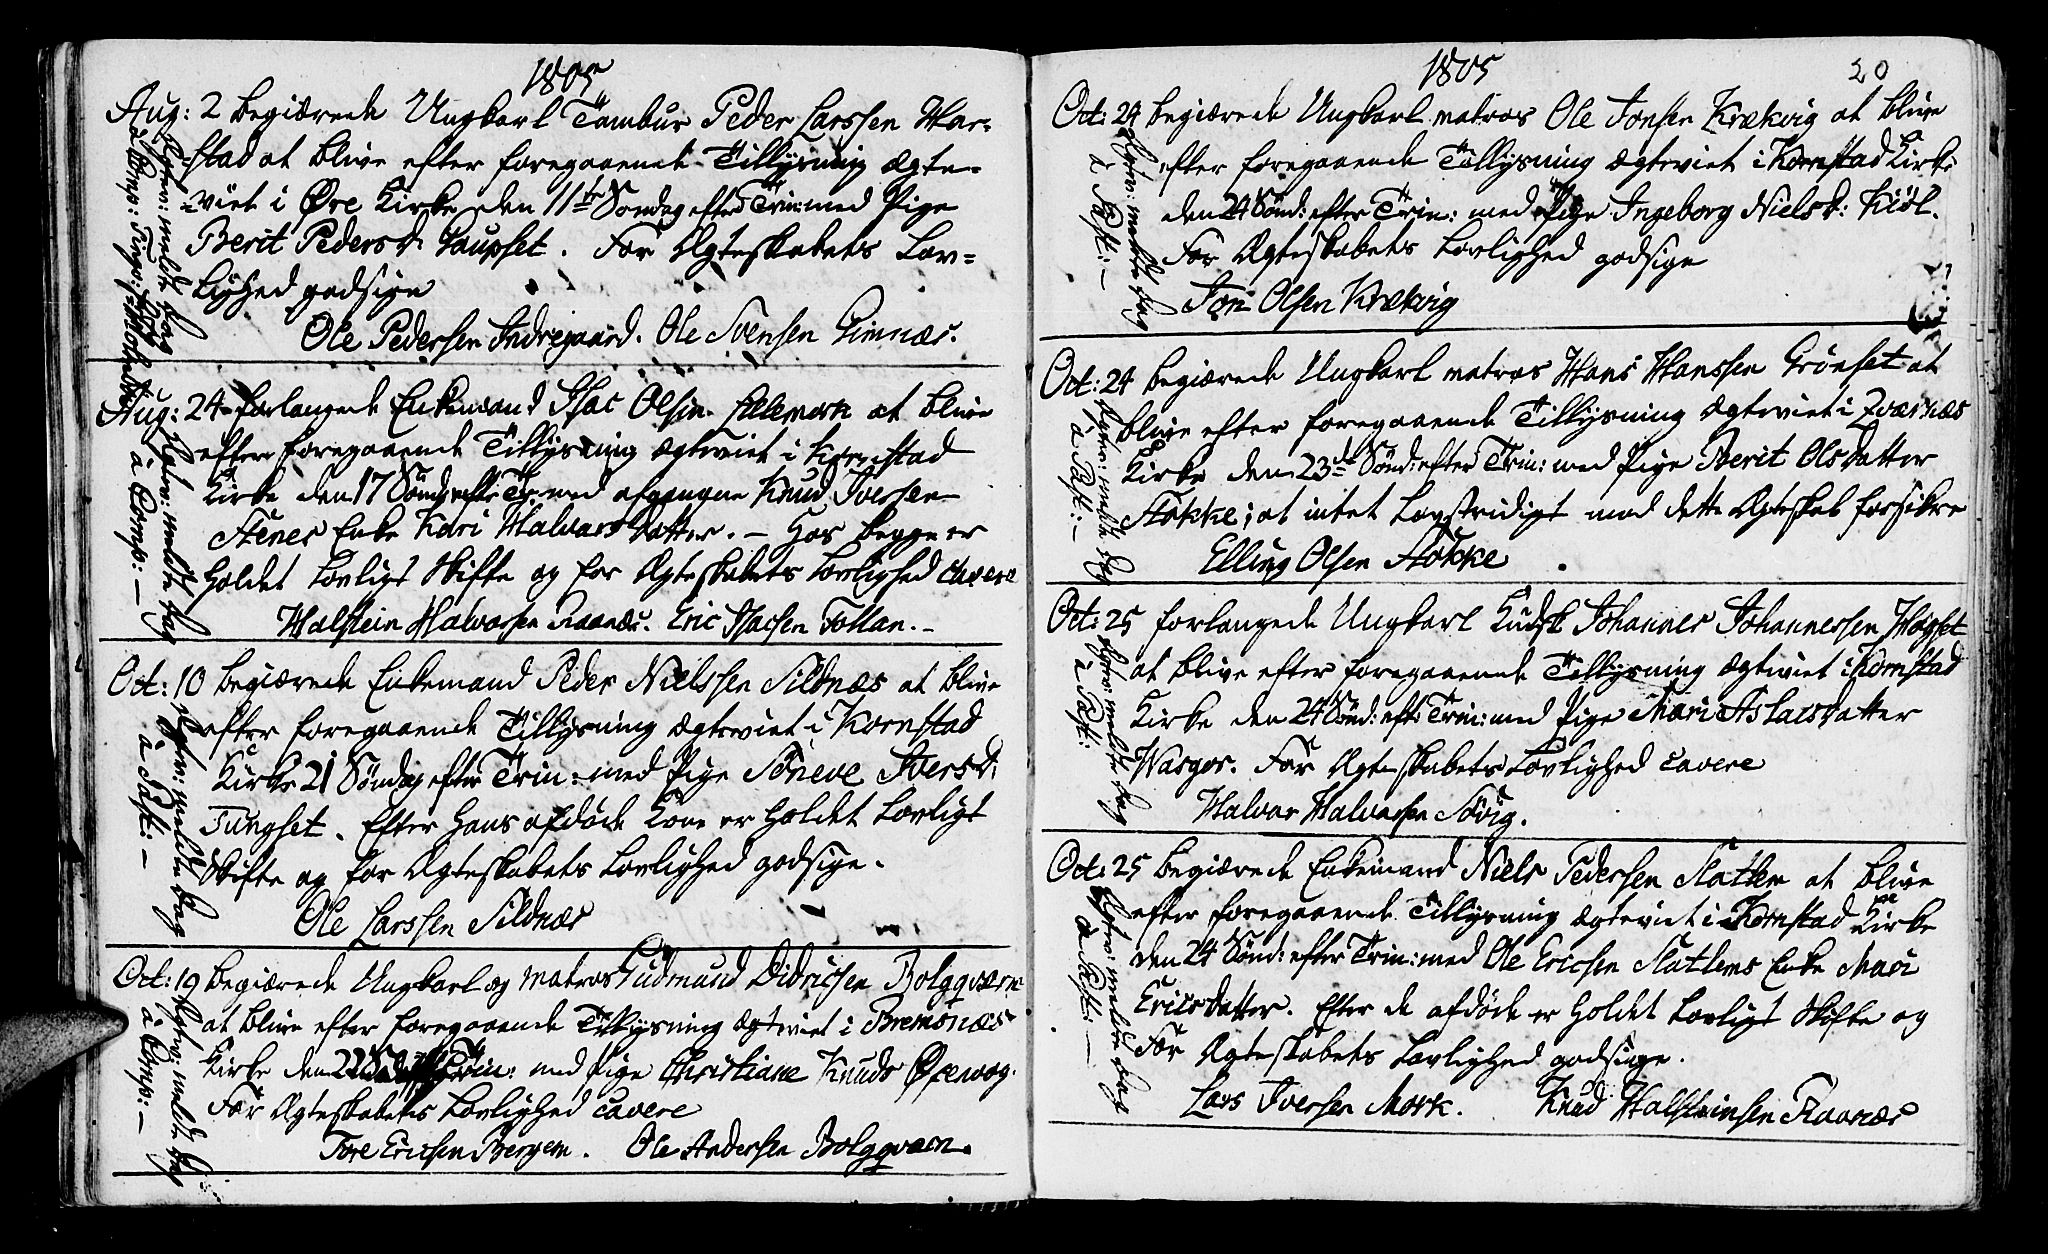 1805
Aug: 2 begiærede Ungkarl Tambur Peder Larssen Har-
stad at blive efter foregaaende Tillysning Ægte-
viet i Øre Kirke den 11te Søndag efter Trin: med Pige
Berit Pedersd. Laupset. For Ægteskabets Lov-
lighed godsige
Ole Pedersen Indregaard. Ole Svensen Gimnæs.
Aug: 24 forlangede Enkemand Isac Olsen at blive
efter foregaaende Tillysning ægteviet i Kornstad
Kirke den 17 Sønd: efter Tr: med afgangne Knud Iversen
Stenes Enke Kari Halvarsdatter. – Hos begge er
holdet Lovligt Skifte og for Ægteskabets Lovlighed cavere
Halstein Halvorsen Raanæs. Eric Isacsen Tollan. –
Oct: 10 begiærede Enkemand Peder Nielssen Sildnæs at blive
efter foregaaende Tillysning ægteviet i Kornstad
Kirke 21 Søndag efter Trin: med Pige Søneve Iversd:
Tungset. Efter hans afdøde Kone er holdet Lovligt
Skifte og for Ægteskabets Lovlighed godsige.
Ole Larssen Sildnæs
Oct: 19 begiærede Ungkarl og matros Gudmund Didricsen Bolgqværn
at blive efter foregaaende Tillysning ægteviet i Bremsnæs
Kirke den 22 Trin: med Pige Christiane Knuds
For Ægteskabets Lovlighed cavere
Tore Ericsen Bergem. Ole Andersen Bolgqvæn.
1805
20
Oct: 24 begiærede Ungkarl matros Ole Jonsen Krækvig at blive
efter foregaaende Tillysning ægteviet i Kornstad Kirke
den 24 Sønd: efter Trin: med Pige Ingeborg Nielsd: Kiøl.
For Ægteskabets Lovlighed godsige
Jon Olsen Krækvig
Oct: 24 begiærede Ungkarl matros Hans Hanssen Grønset at
blive efter foregaaende Tillysning ægteviet i Qværnæs
Kirke den 23de Sønd: efter Trin: med Pige Berit Olsdatter
Stokke; at intet Lovstridigt mod dette Ægteskab forsikre
Elling Olsen Stokke
Oct: 25 forlangede Ungkarl Johannes Johannessen Høgset
at blive efter foregaaende Tillysning ægteviet i Kornstad
Kirke den 24 Sønd: eft: Trin: med Pige Mari Aslacsdatter
For Ægteskabets Lovlighed cavere
Halvor Halvorsen Søvig.
Oct: 25 begiærede Enkemand Niels Pedersen Slatlem at blive
efter foregaaende Tillysning ægteviet i Kornstad Kirke
den 24 Sønd: efter Trin: med Ole Ericsen Slatlems Enke Mari
Ericsdatter. Efter de afdøde er holdet Lovligt Skifte og
For Ægteskabets Lovlighed godsige.
Lars Iversen Mork. Knud Halsteinsen Raanæs